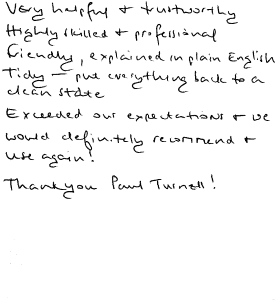 Very helpful + trustworthy
Highly skilled + professional
friendly, explained in plain English
Tidy - put everything back to a
clean state
Exceeded our expectations + we
would definitely recommend +
use again!
Thankyou Paul Turnell!